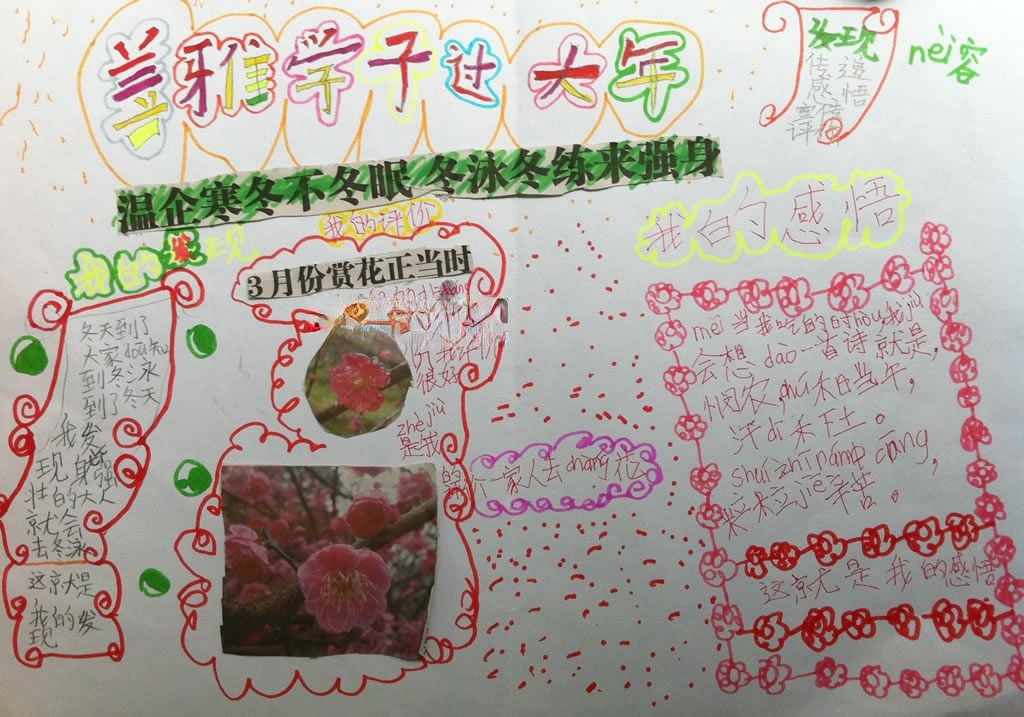 美雅学子过大年
发现
传递
感悟
nèi容
温企寒冬不冬眠 冬泳冬练来强身
我的评价
我的发现
3月份赏花正当时
我的感悟
冬天到了
大家dōu知
到冬泳
到了冬天
我发
现身强
壮的大人
就会
去冬泳
这就是
我的发
现
很好
zhejiù
是我
的
一家人去shǎng花
měi当我吃的时hou,我jiù
会想dào一首诗就是,
悯农,chú禾日当午,
汗dī禾下土。
shuí zhī pán zhōng cān,
粒粒jiē辛苦。
这就是我的感悟